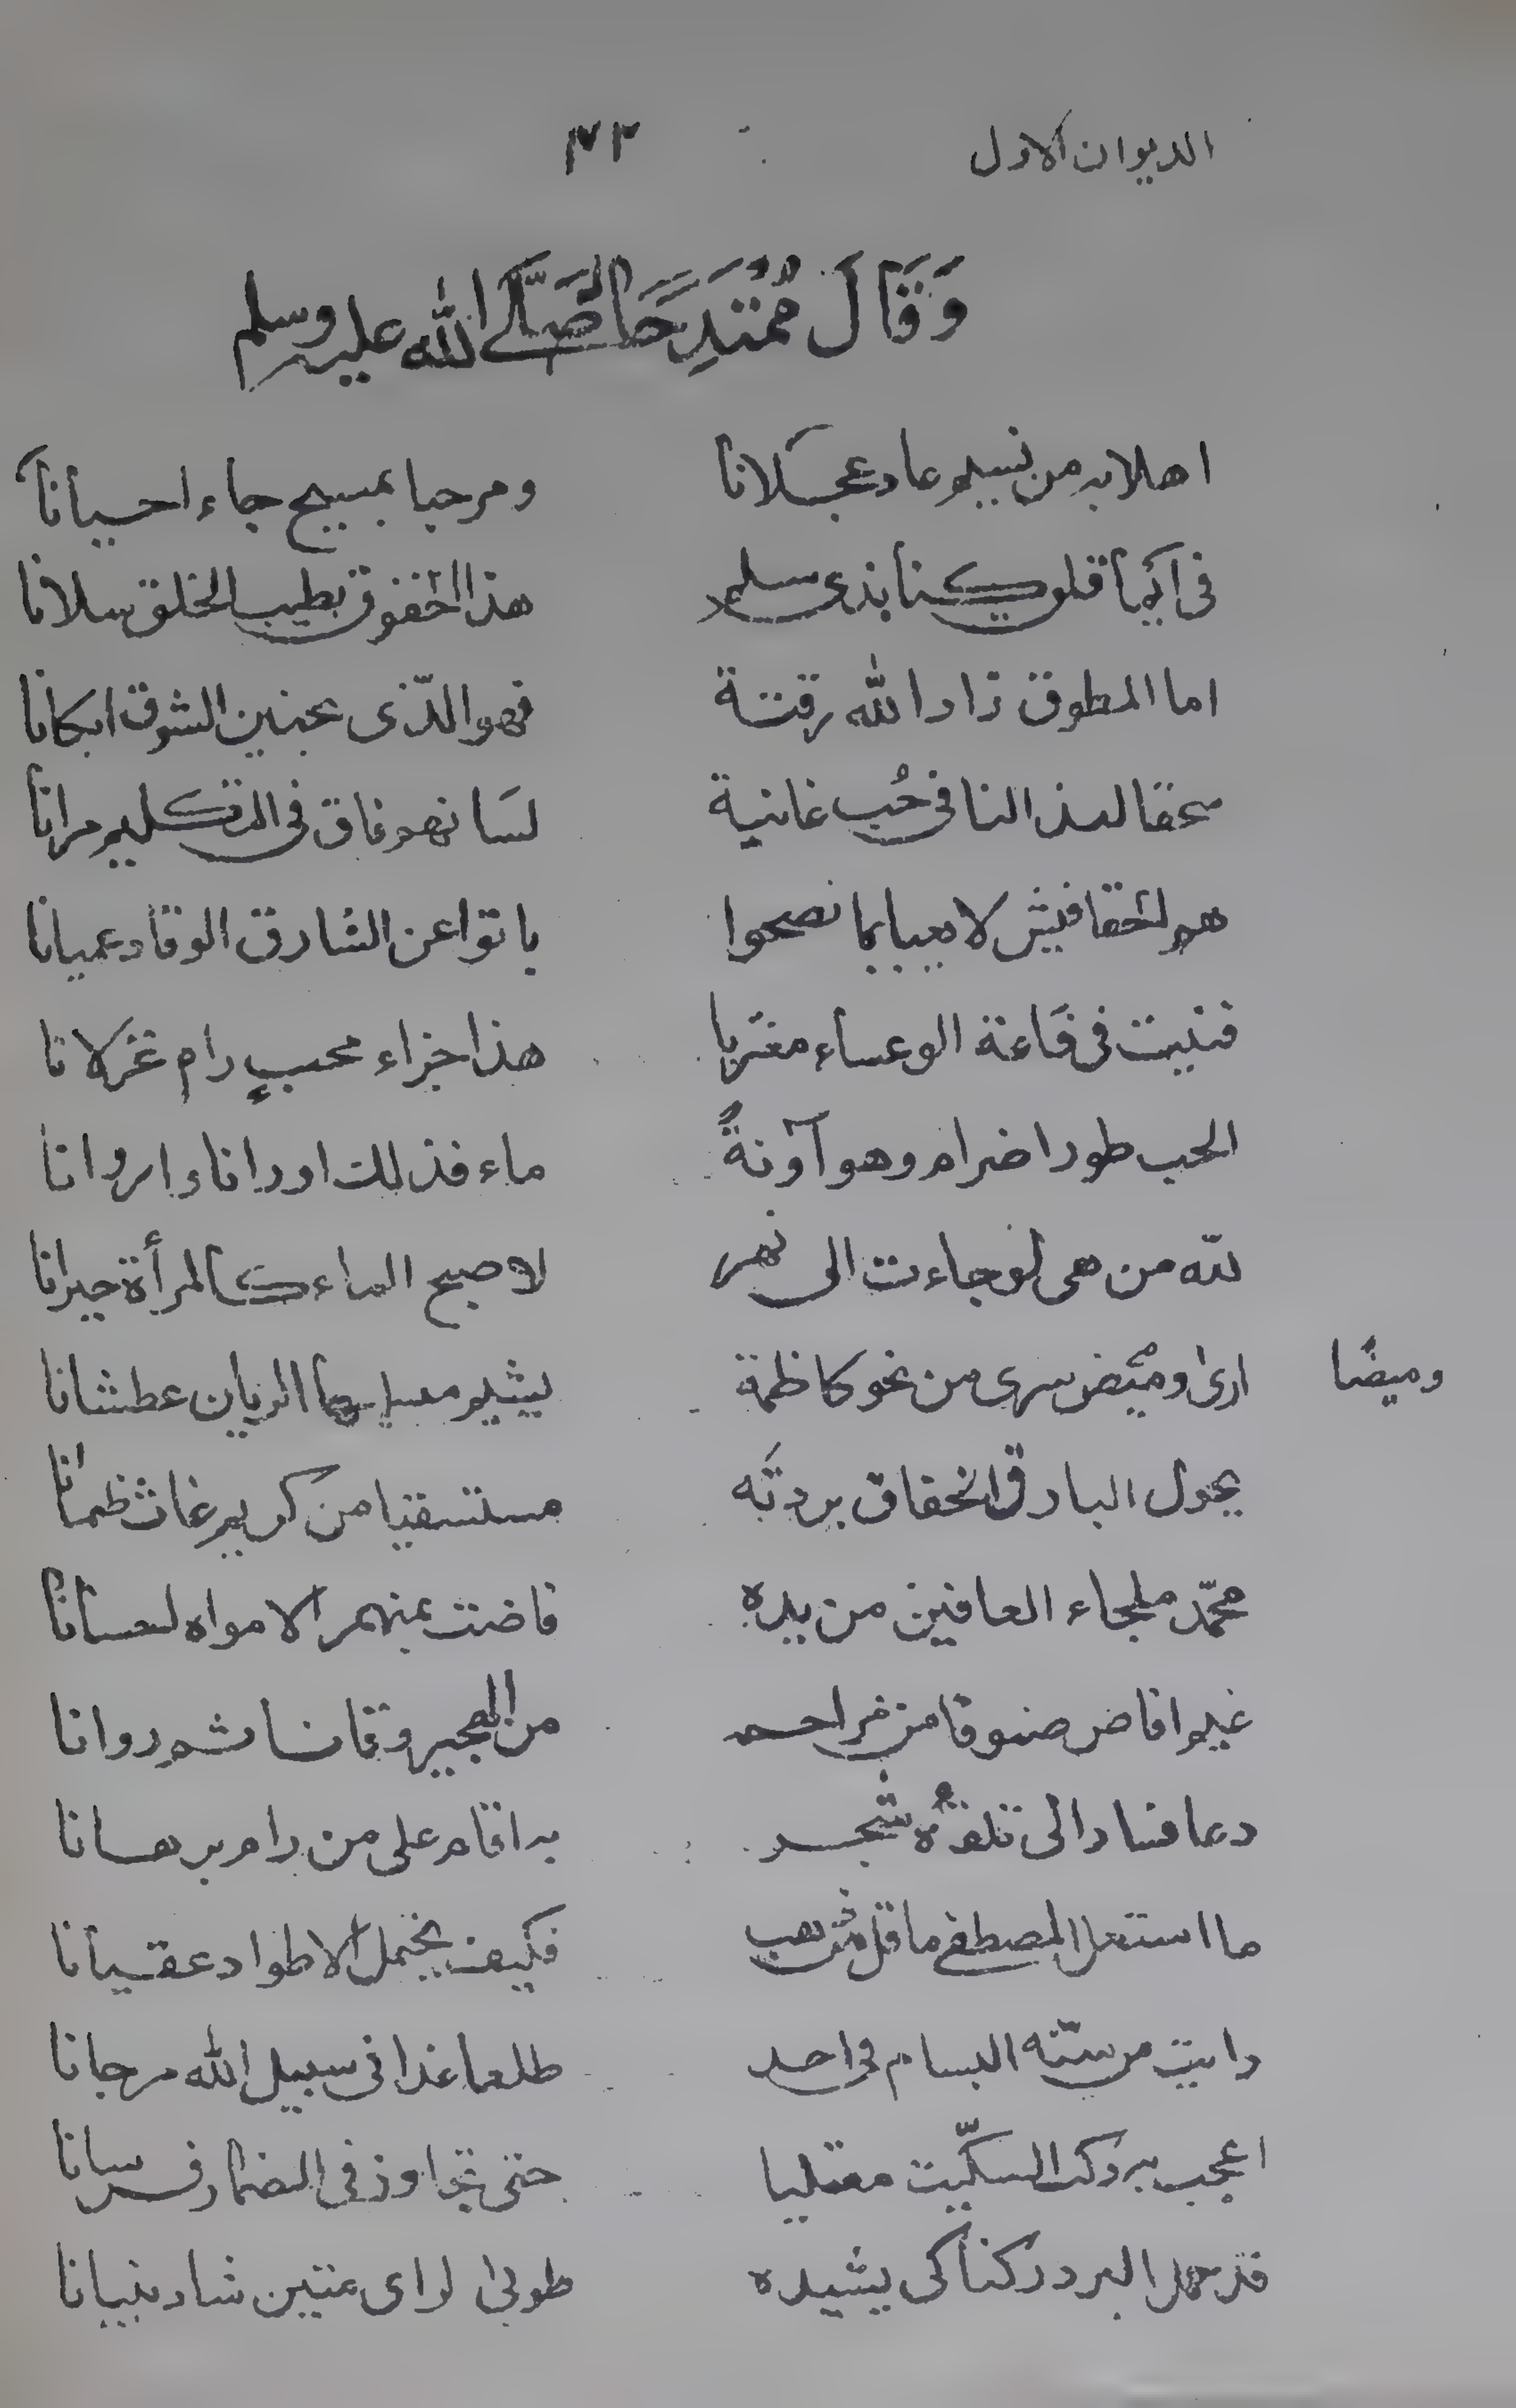 الديوان الاول ٣٢
وَقَالَ مُمْتَدِحًا صَلَّى الله عليه وسلم
اهلا به من نسيم عاد عجلانا ومرحبا بمسيح جاء احيانا
فى ايما قلو كنا بذى سلم هذا الخفوق بطيب الخلق سلانا
اما المطوق زاد الله رقته فهو الذى بحنين الشوق ابكانا
سحقا لعذالنا فى حُب غانية لسانهم فاق فى التكليم مرانا
هم الخفافيش لا يعبا بما نصحوا باتوا عن الشارق الوقاد عميانا
فنيت فى قاعة الوعساء مغتربا هذا جزاء محبٍ رام غزلانا
الحب طورا ضرام وهو آونةً ماء فذلك اورانا واروانا
لله من هى لو جاءت الى نهر لاصبح الماء كالمرأة حيرانا
ارى وميض سرى من نحو كاظمة يشيم الريان عطشانا
وميضًا
يحول البارق الخفاق بردته مستسقيا من كريم غاث ظمانا
محمّد ملجاء العافين من يده فاضت بمنهمر الامواه لعسانا
غيم افاض صنوفا من مراحمه من الهجير وقانا ثم روانا
دعا فنادا الى تلقائه شجر بدا اقام على من رام برهانا
ما استعمل المصطفى ما قل من ذهب فكيف يحتمل الاطواد عقيانا
رايت من سنّه البسام فى احد طلعا غدا فى سبيل الله مرجانا
اعجب به ركب السكّيت معتليا حتى تجاوز فى المضمار فرسانا
قد حمل البرد ركنا كى يشيده طوبى لراى متين شاد بنيانا